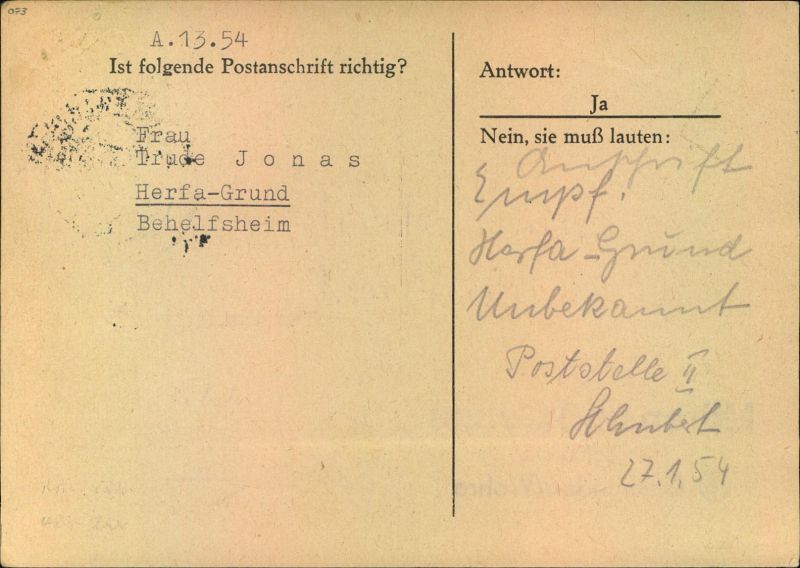 073
A.13.54
Ist folgende Postanschrift richtig?
Frau
Trude Jonas
Herfa-Grund
Behelfsheim
Antwort:
Ja
Nein, sie muß lauten:
Anschrift
Empf.
Herfa-Grund
Unbekannt
Poststelle II
27.1.54